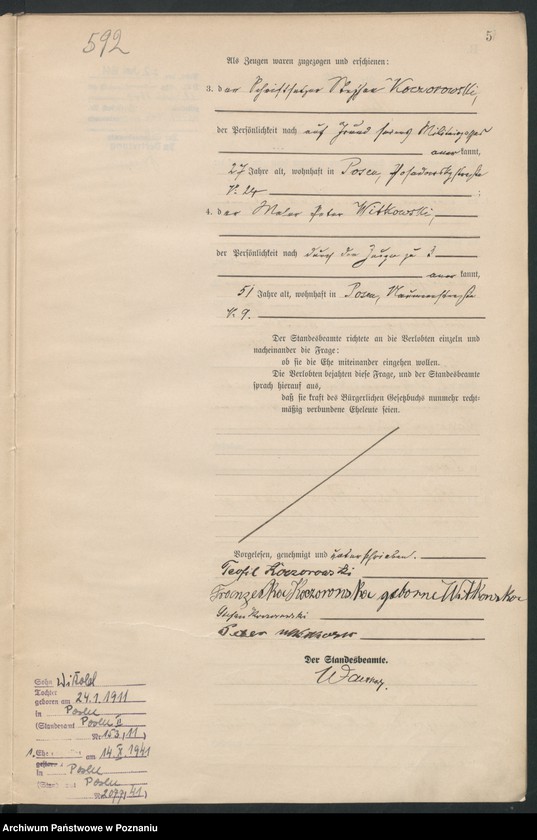 592
5
Als Zeugen waren zugezogen und erschienen:
3. der Schriftsetzer Stefan Koczorowski,
der Persönlichkeit nach auf Grund seines Militärpasses
anerkannt,
27 Jahre alt, wohnhaft in Posen, Posadowskystraße
N. 24 ;
4. der Maler Peter Witkowski,
der Persönlichkeit nach durch den Zeugen zu 3
anerkannt,
51 Jahre alt, wohnhaft in Posen, Naumannstraße
N. 9.
Der Standesbeamte richtete an die Verlobten einzeln und
nacheinander die Frage:
ob sie die Ehe miteinander eingehen wollen.
Die Verlobten bejahten diese Frage, und der Standesbeamte
sprach hierauf aus,
daß sie kraft des Bürgerlichen Gesetzbuchs nunmehr recht-
mäßig verbundene Eheleute seien.
Vorgelesen, genehmigt und unterschrieben.
Teofil Koczorowski
Franzeska Koczorowska geborne Witkowska
Stefan Koczorowski
Peter Witkowski
Der Standesbeamte.
Sohn Witold
Tochter
geboren am 24.1.1911
in Posen
(Standesamt Posen II
Nr. 153/11)
1. Ehe am 14.X.1941
in Posen
Posen
Nr. 2077/41)
Archiwum Państwowe w Poznaniu